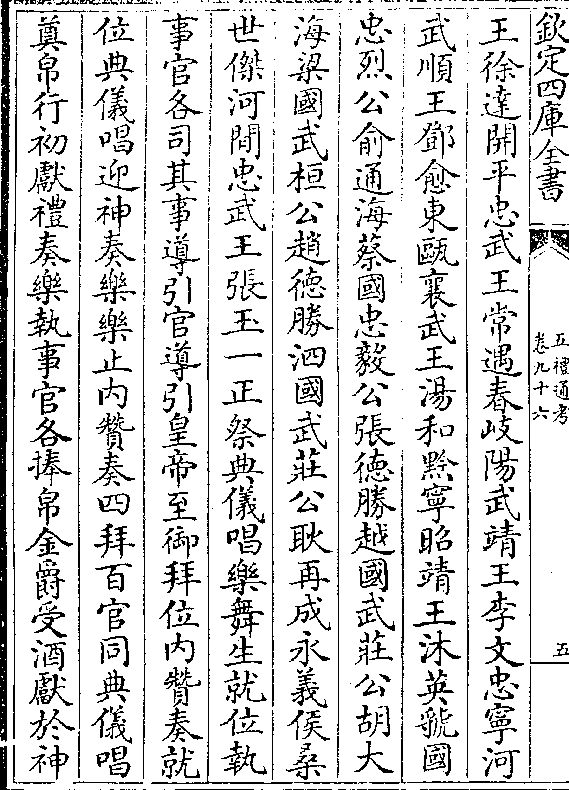 欽定四庫全書
五禮通考
卷九十六
五
王徐達開平忠武王常遇春岐陽武靖王李文忠寧河
武順王鄧愈東甌襄武王湯和黔寧昭靖王沐英虢國
忠烈公俞通海蔡國忠毅公張德勝越國武莊公胡大
海梁國武桓公趙德勝泗國武莊公耿再成永義侯桑
世傑河間忠武王張玉一正祭典儀唱樂舞生就位執
事官各司其事導引官導引皇帝至御拜位內贊奏就
位典儀唱迎神奏樂樂止內贊奏四拜百官同典儀唱
奠帛行初獻禮奏樂執事官各捧帛金爵受酒獻於神